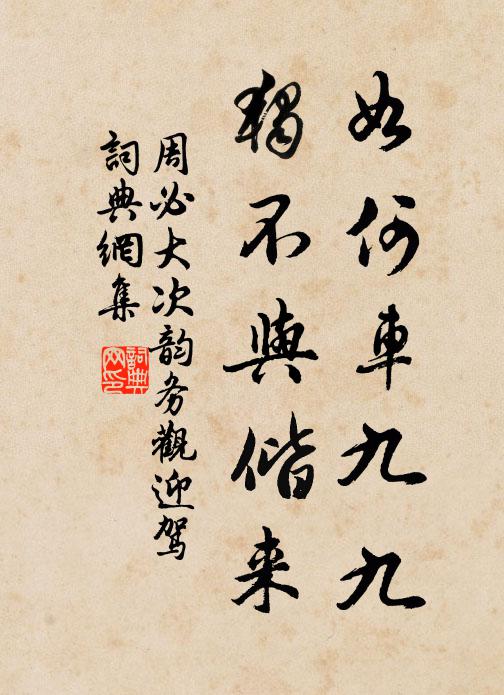 如何車九九
獨不與偕来
周必大次韵务觀迎駕
詞典網集
詞典
网印